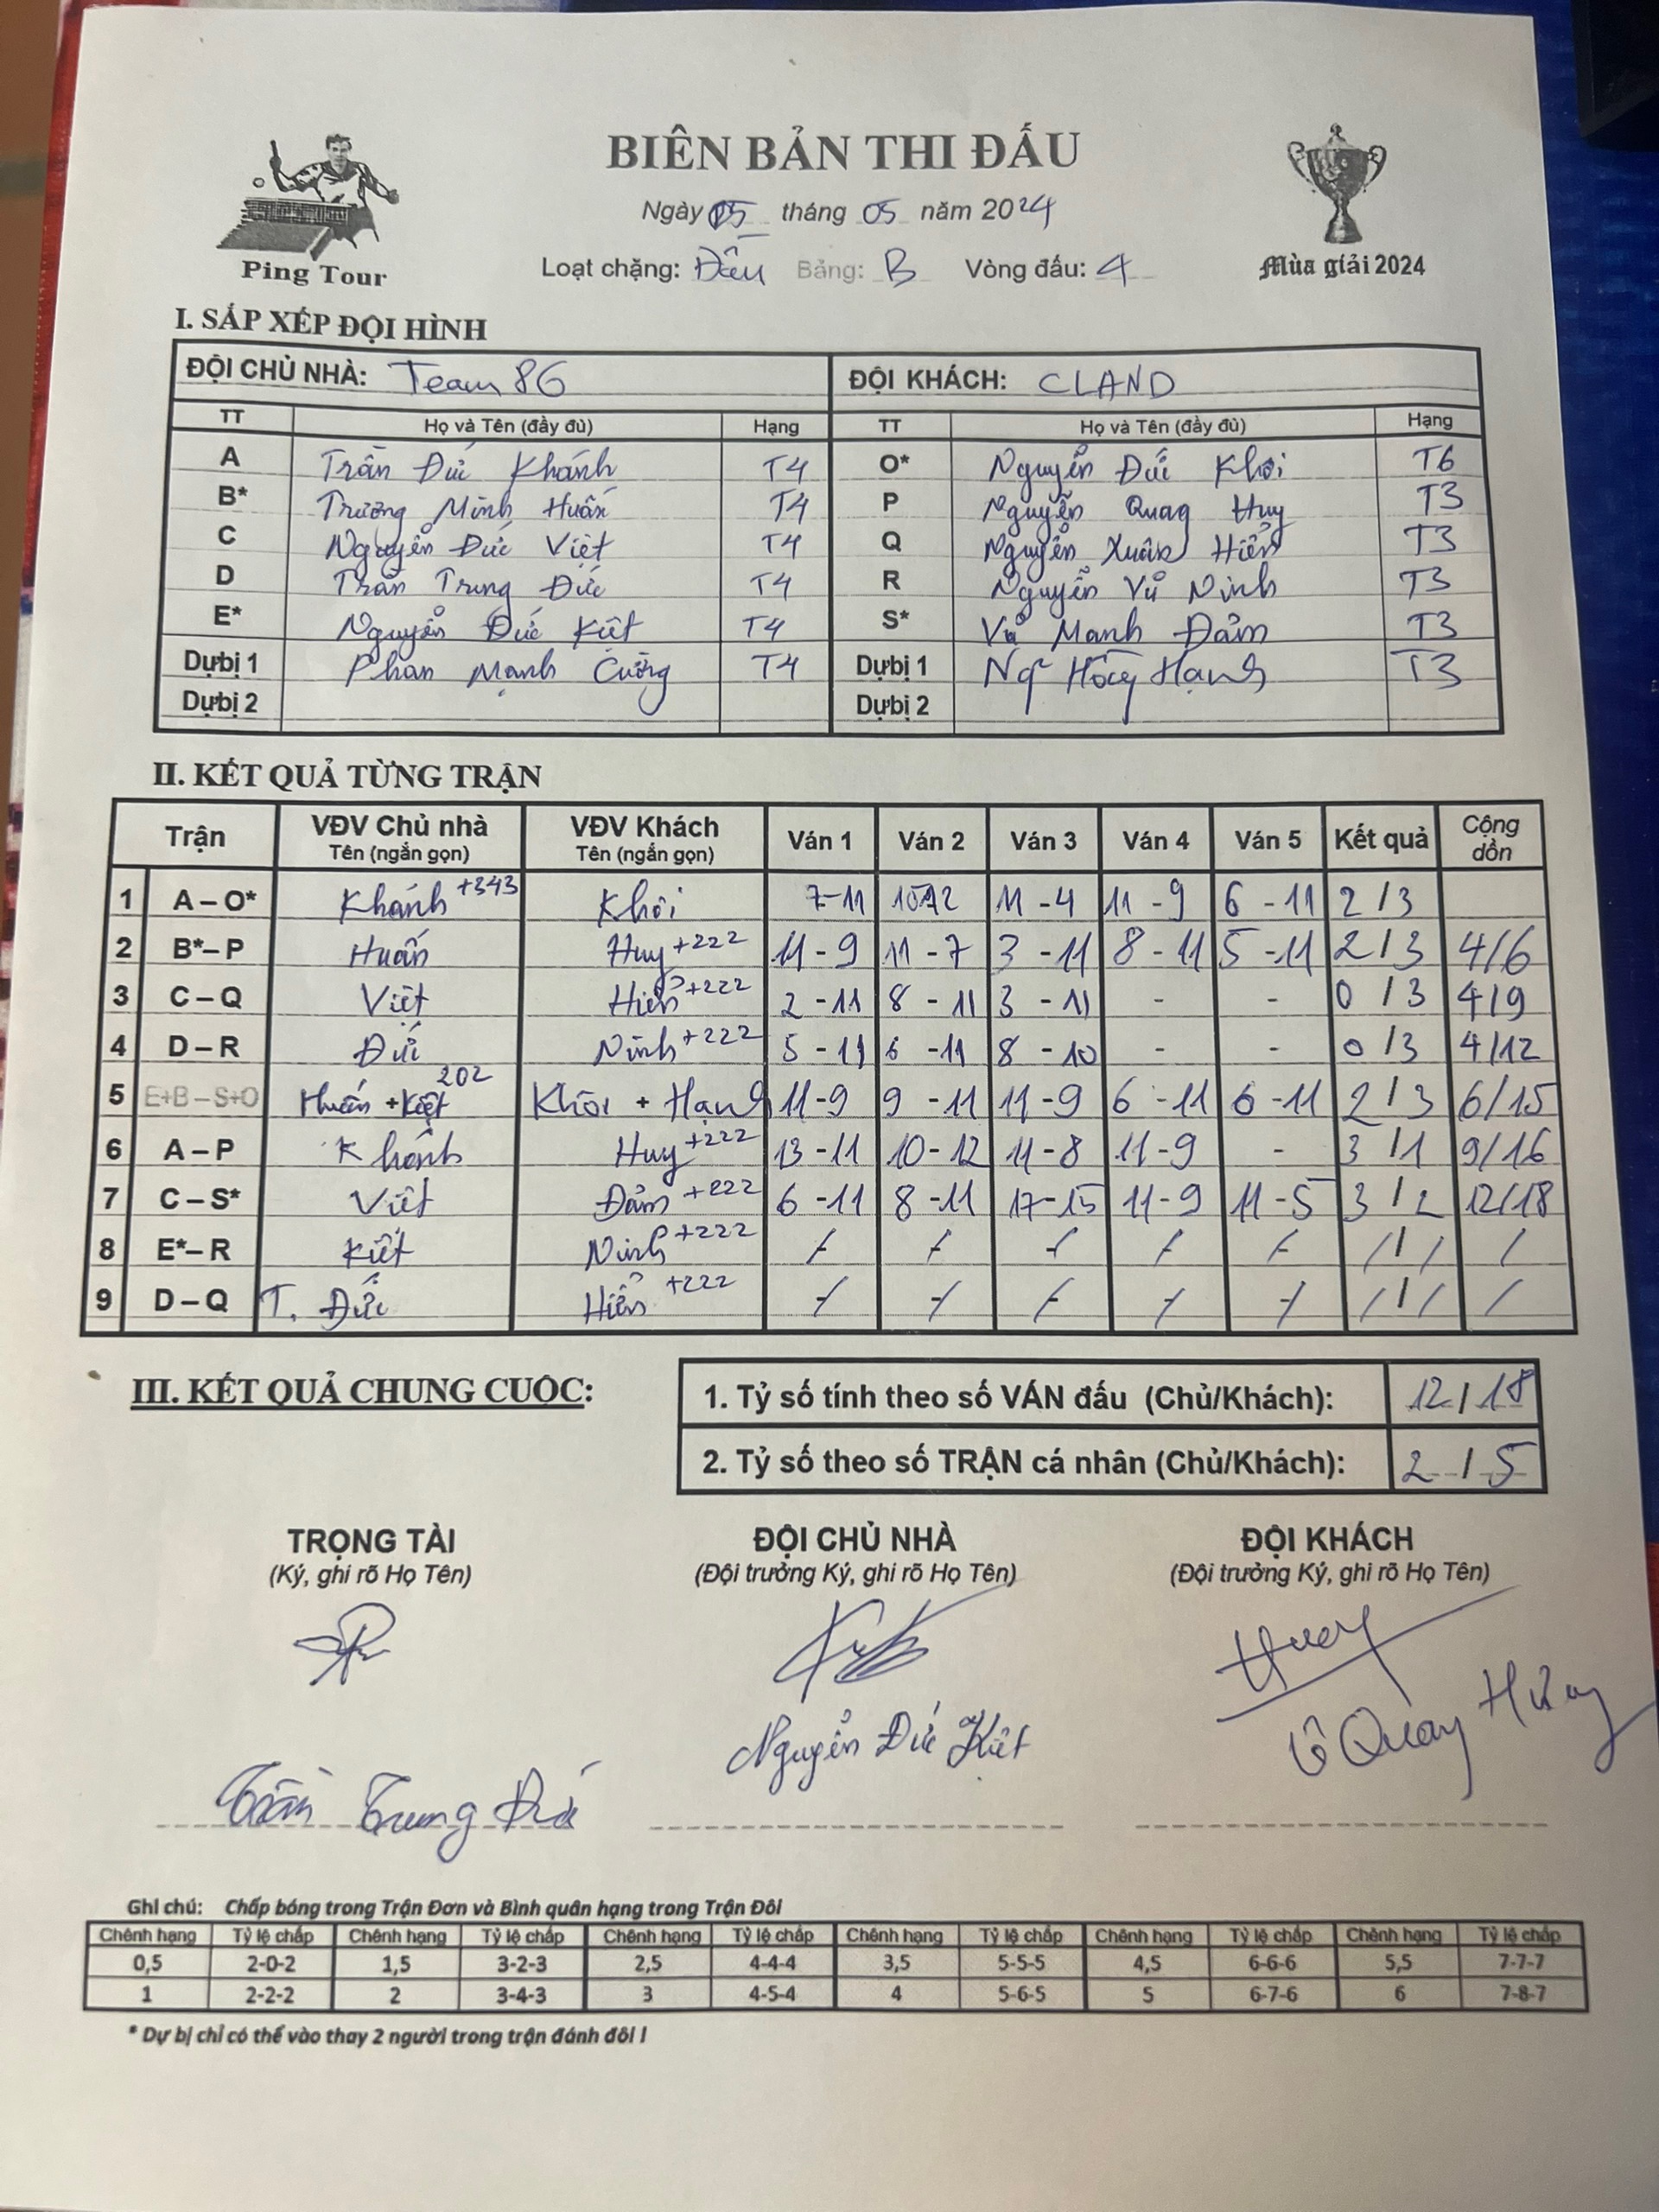 BIÊN BẢN THI ĐẤU
Ngày 05 tháng 05 năm 2024
Loạt chặng: Đấu Bảng: B Vòng đấu: 4
Ping Tour
Mùa giải 2024
I. SẮP XẾP ĐỘI HÌNH
ĐỘI CHỦ NHÀ: Team 8G ĐỘI KHÁCH: CLAND
TT Họ và Tên (đầy đủ) Hạng TT Họ và Tên (đầy đủ) Hạng
A Trần Đức Khánh T4 O* Nguyễn Đức Khôi T6
B* Trương Minh Huấn T4 P Nguyễn Quag Huy T3
C Nguyễn Đức Việt T4 Q Nguyễn Xuân Hiển T3
D Trần Trung Đức T4 R Nguyễn Vũ Ninh T3
E* Nguyễn Đức Kiệt T4 S* Vũ Mạnh Đảm T3
Dự bị 1 Phan Mạnh Cường T4 Dự bị 1 Ng Hồng Hạnh T3
Dự bị 2 Dự bị 2
II. KẾT QUẢ TỪNG TRẬN
Trận VĐV Chủ nhà Tên (ngắn gọn) VĐV Khách Tên (ngắn gọn) Ván 1 Ván 2 Ván 3 Ván 4 Ván 5 Kết quả Cộng dồn
1 A – O* Khánh +343 Khôi 7-11 10-12 11-4 11-9 6-11 2/3
2 B*– P Huấn Huy +222 11-9 11-7 3-11 8-11 5-11 2/3 4/6
3 C – Q Việt Hiển +222 2-11 8-11 3-11 - - 0/3 4/9
4 D – R Đức Ninh +222 5-11 6-11 8-10 - - 0/3 4/12
5 E+B – S+O Huấn + Kiệt 202 Khôi + Hạnh 11-9 9-11 11-9 6-11 6-11 2/3 6/15
6 A – P Khánh Huy +222 13-11 10-12 11-8 11-9 - 3/1 9/16
7 C – S* Việt Đảm +222 6-11 8-11 17-15 11-9 11-5 3/2 12/18
8 E*– R Kiệt Ninh +222 / / / / / / / / /
9 D – Q T. Đức Hiển +222 / / / / / / / / /
III. KẾT QUẢ CHUNG CUỘC:
1. Tỷ số tính theo số VÁN đấu (Chủ/Khách): 12/18
2. Tỷ số theo số TRẬN cá nhân (Chủ/Khách): 2/5
TRỌNG TÀI ĐỘI CHỦ NHÀ ĐỘI KHÁCH
(Ký, ghi rõ Họ Tên) (Đội trưởng Ký, ghi rõ Họ Tên) (Đội trưởng Ký, ghi rõ Họ Tên)
Trần Trung Đức Nguyễn Đức Kiệt
Ghi chú: Chấp bóng trong Trận Đơn và Bình quân hạng trong Trận Đôi
Chênh hạng Tỷ lệ chấp Chênh hạng Tỷ lệ chấp Chênh hạng Tỷ lệ chấp Chênh hạng Tỷ lệ chấp Chênh hạng Tỷ lệ chấp Chênh hạng Tỷ lệ chấp
0,5 2-0-2 1,5 3-2-3 2,5 4-4-4 3,5 5-5-5 4,5 6-6-6 5,5 7-7-7
1 2-2-2 2 3-4-3 3 4-5-4 4 5-6-5 5 6-7-6 6 7-8-7
* Dự bị chỉ có thể vào thay 2 người trong trận đánh đôi !